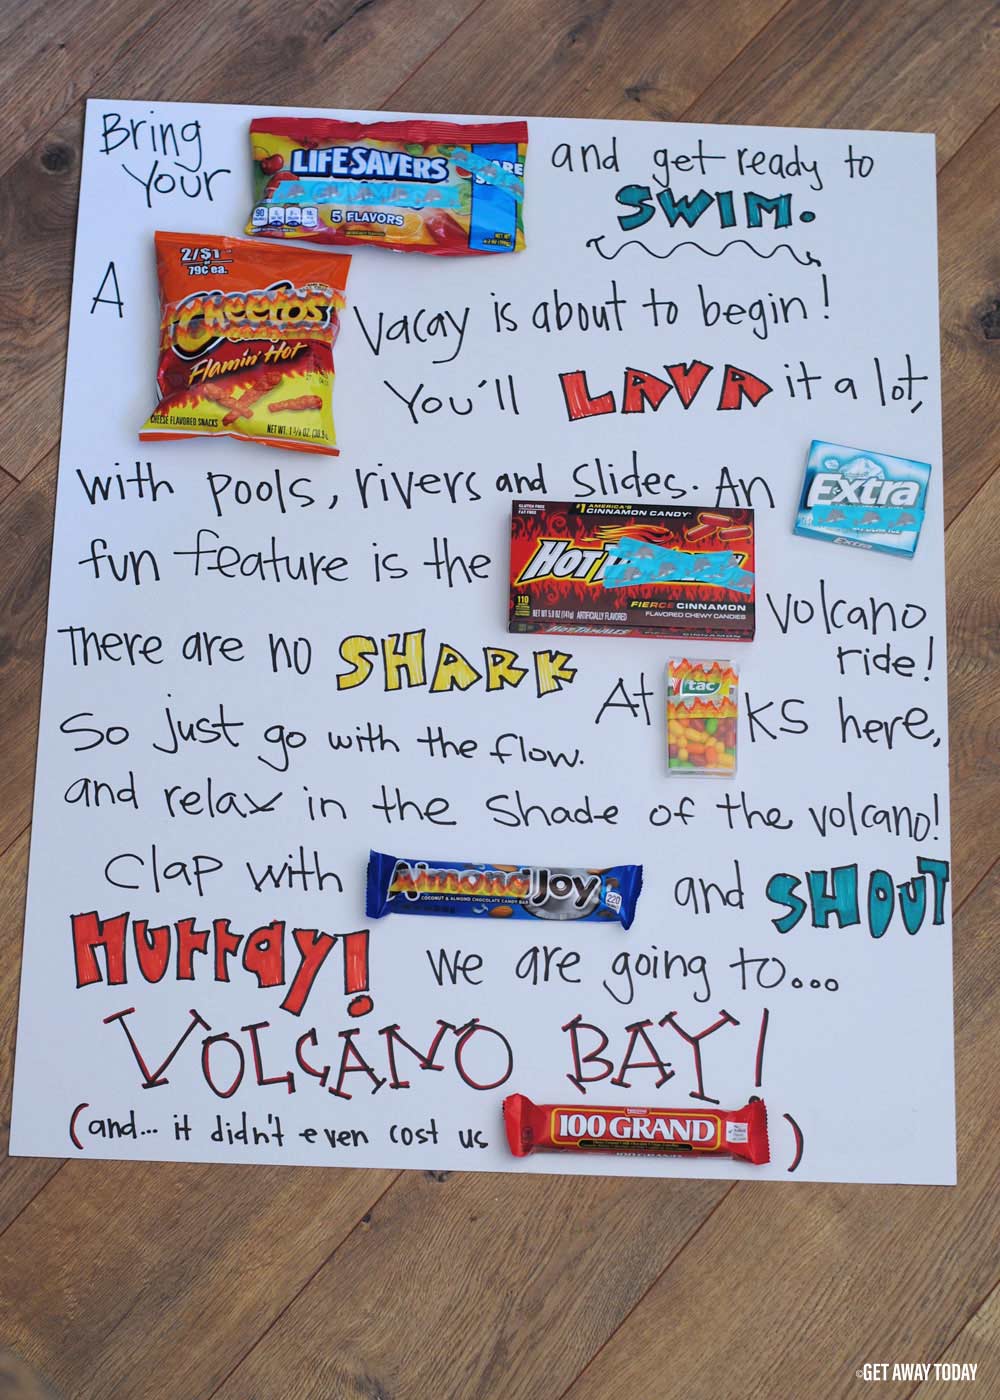 Bring Your LIFE SAVERS and get ready to
SWIM.
GUMMIES
5 FLAVORS
90
2/$1
or
79¢ ea.
A Cheetos Vacay is about to begin!
Flamin' Hot
CHEESE FLAVORED SNACKS
You'll LAVA it a lot,
with pools, rivers and slides. An Extra
Extra
GLUTEN FREE
FAT FREE
#1 AMERICA'S CINNAMON CANDY
fun feature is the HOT TAMALES volcano ride!
110
FIERCE CINNAMON
FLAVORED CHEWY CANDIES
NET WT. 5.0 OZ (141g) ARTIFICIALLY FLAVORED
HOT TAMALES
There are no SHARK At tac KS here,
So just go with the flow.
and relax in the shade of the volcano!
Clap with Almond Joy and SHOUT
COCONUT & ALMOND CHOCOLATE CANDY BAR
220
Hurray! We are going to...
VOLCANO BAY!
(and... it didn't even cost us 100 GRAND)
100 GRAND
©GET AWAY TODAY